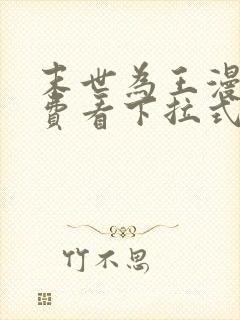 末世为王漫
费看下拉式
竹不思